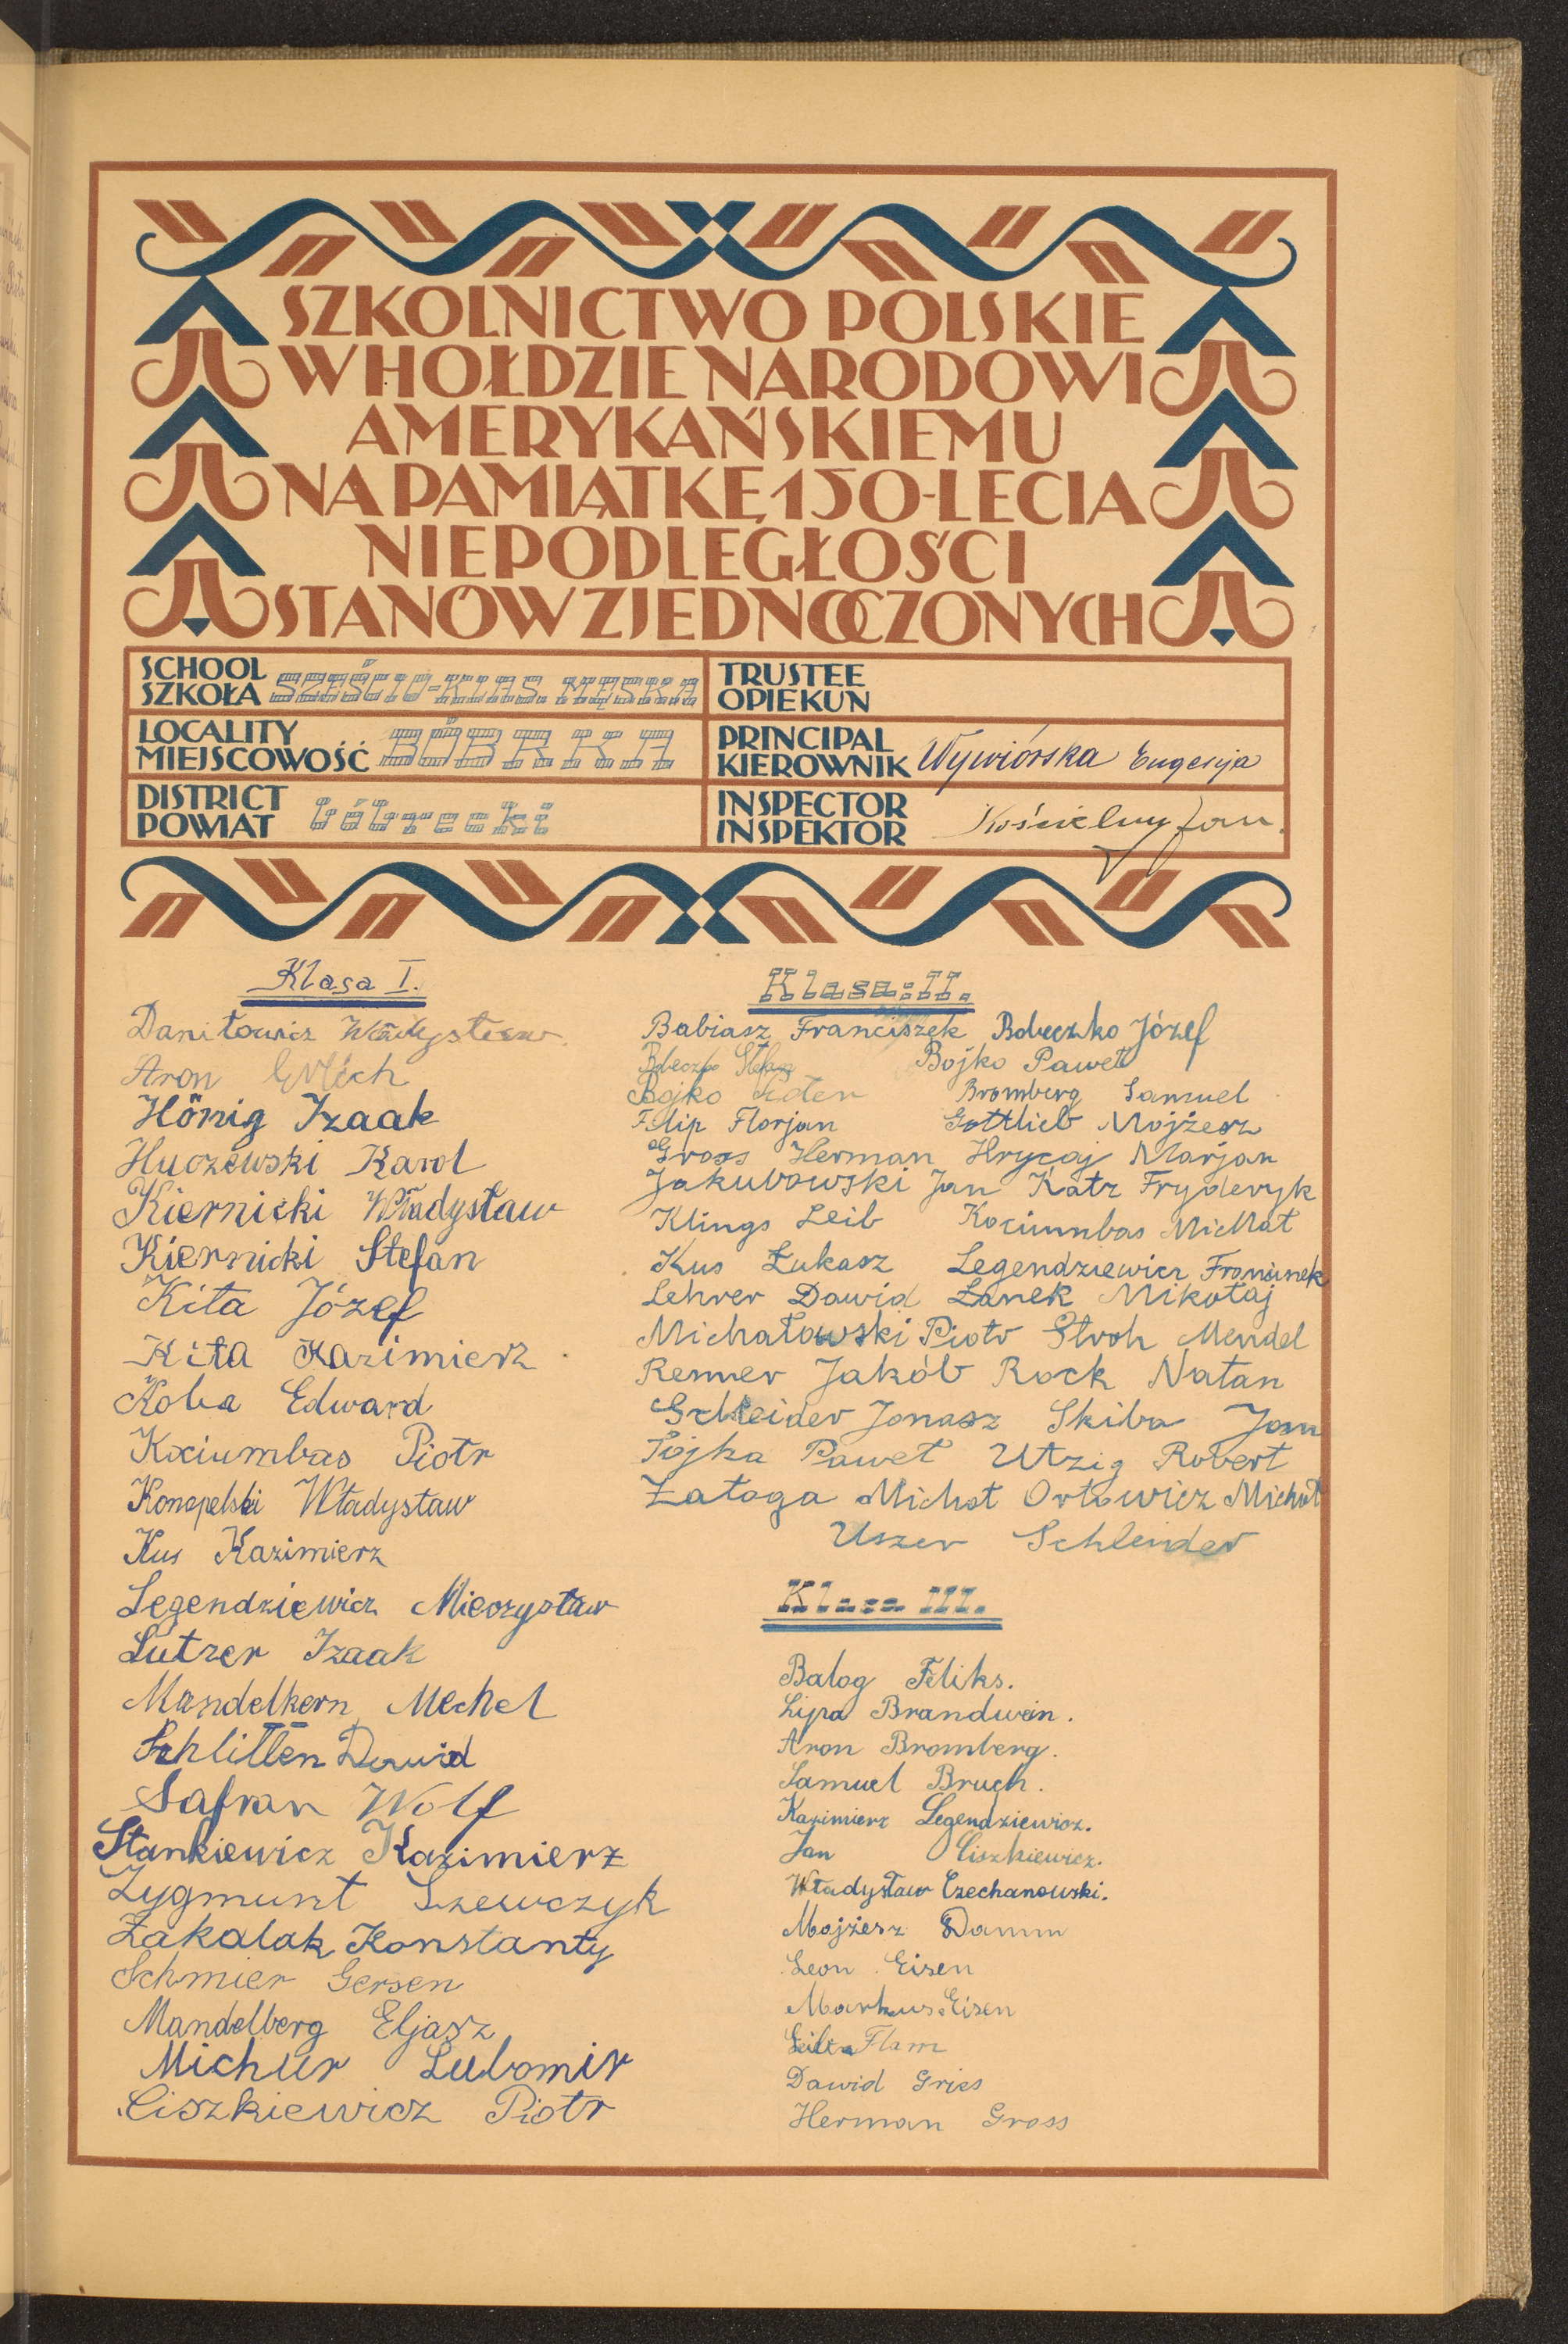 SZKOLNICTWO POLSKIE
W HOŁDZIE NARODOWI
AMERYKAŃSKIEMU
NA PAMIĄTKĘ 150-LECIA
NIEPODLEGŁOŚCI
STANÓW ZJEDNOCZONYCH
SCHOOL
SZKOŁA SZEŚCIO-KLAS. MĘSKA
TRUSTEE
OPIEKUN
LOCALITY
MIEJSCOWOŚĆ BÓBRKA
PRINCIPAL
KIEROWNIK Wywiórska Eugenja
DISTRICT
POWIAT bóbrecki
INSPECTOR
INSPEKTOR Kościelny Jan
Klasa I.
Daniłowicz Władysław
Aron
Hönig Izaak
Huczewski Karol
Kiernicki Władysław
Kiernicki Stefan
Kita Józef
Kita Kazimierz
Koba Edward
Kociumbas Piotr
Konopelski Władysław
Kus Kazimierz
Legendziewicz Mieczysław
Lutzer Izaak
Mandelkern Mechel
Schlitten Dawid
Safran Wolf
Stankiewicz Kazimierz
Zygmunt Szewczyk
Zakalak Konstanty
Schmier Gersen
Mandelberg Eljasz
Michur Lubomir
Ciszkiewicz Piotr
Klasa: II.
Babiasz Franciszek Bobeczko Józef
Bobeczko Stefan Bojko Paweł
Bojko Bromberg Samuel
Filip Florjan Gottlieb Mojżesz
Gross Herman Hrycaj Marjan
Jakubowski Jan Katz Fryderyk
Klings Leib Kociumbas Michał
Kus Łukasz Legendziewicz Franciszek
Lehrer Dawid Łanek Mikołaj
Michałowski Piotr Stroh Mendel
Renner Jakób Rock Natan
Schleider Jonasz Skiba Jan
Sojka Paweł Utzig Robert
Załoga Michał Orłowicz Michał
Uszer Schleider
Klasa III.
Balog Feliks.
Lipa Brandwein.
Aron Bromberg.
Samuel Bruch.
Kazimierz Legendziewicz.
Jan Ciszkiewicz.
Władysław Czechanowski.
Mojżesz Damm
Leon Eisen
Markus Eisen
Flam
Dawid Gries
Herman Gross